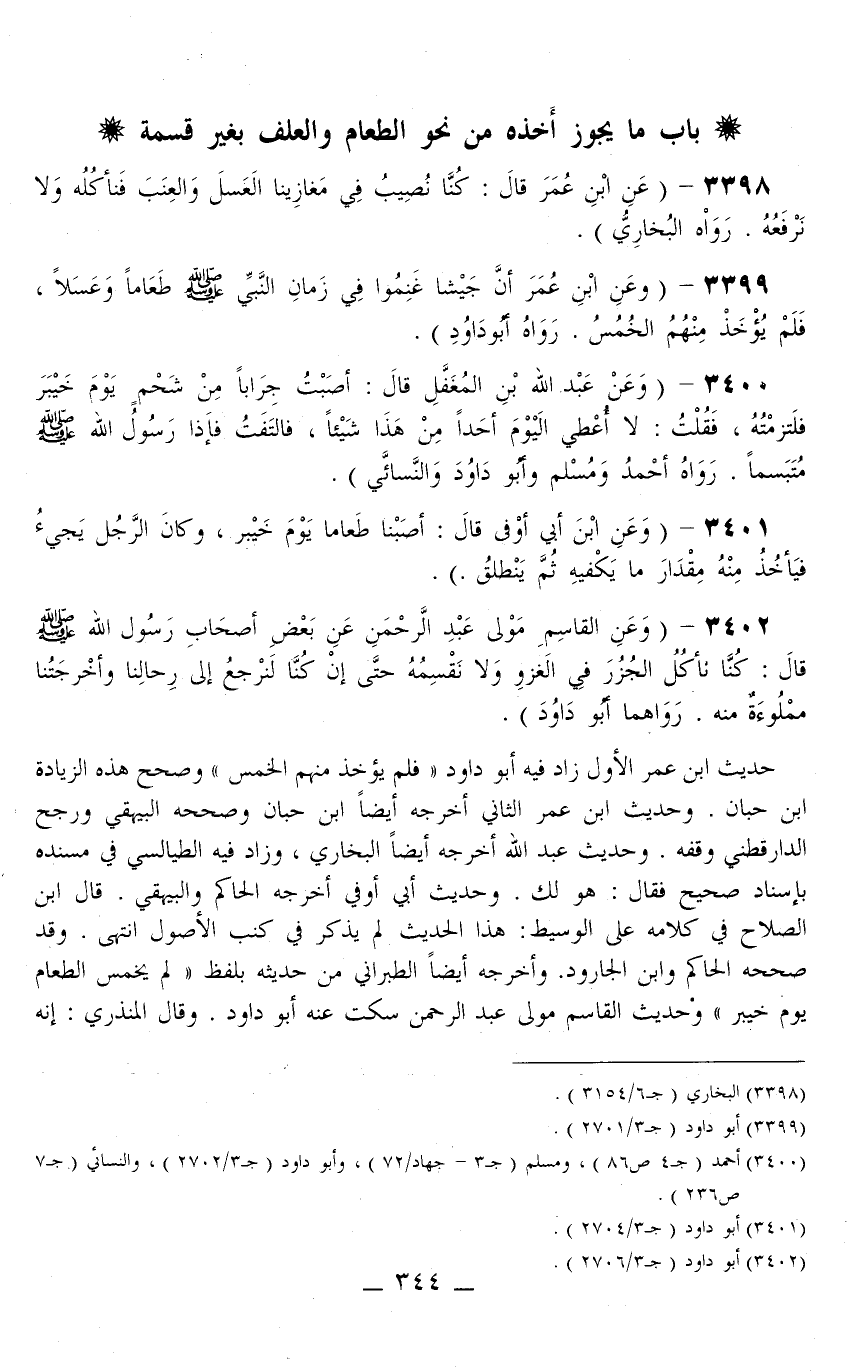 ❋ باب ما يجوز أخذه من نحو الطعام والعلف بغير قسمة ❋
٣٣٩٨ – ( عَنِ ابْنِ عُمَرَ قالَ : كُنَّا نُصِيبُ فِي مَغازِينا العَسلَ وَالعِنَبَ فَنأكُلُه وَلا
نَرْفَعُهُ . رَوَاْه البُخارِيُّ ) .
٣٣٩٩ – ( وعَنِ ابْنِ عُمَرَ أنَّ جَيْشا غَنِمُوا فِي زَمانِ النَّبيِّ ﷺ طَعَاماً وَعَسَلاً ،
فَلَمْ يُؤْخَذْ مِنْهُمُ الخُمُسُ . رَوَاهُ أبُوداوُدِ ) .
٣٤٠٠ – ( وَعَنْ عَبْد الله بْنِ المُغَفَّلِ قالَ : أصَبْتُ جِرَاباً مِنْ شَحْمٍ يَوْمَ خَيْبَرَ
فلَتزمْتُهُ ، فَقُلْتُ : لا أُعْطي الَيْوْمَ أحَداً مِنْ هَذَا شَيْئاً ، فالتَفَتُ فإذا رَسُولُ الله ﷺ
مُتَبَسماً . رَوَاهُ أحْمدُ وَمُسْلم وأبُو دَاوُدَ وَالنَّسائَّي ) .
٣٤٠١ – ( وَعَنِ ابْنَ أبي أوْفى قالَ : أصَبْنا طَعاما يَوْمَ خَيْبر ، وكانَ الرَّجُل يَجيءُ
فيَأخُذُ مِنْهُ مِقْدَارَ ما يَكْفيهِ ثُمَّ يَنْطلقُ .) .
٣٤٠٢ – ( وَعَنِ القاسِمِ مَوْلى عَبْدِ الَّرحْمَنِ عَنِ بَعْضِ أصحَابِ رَسُول الله ﷺ
قالَ : كُنَّا نَأكُلُ الجُزُرَ فِي الغَزوِ وَلا نَقْسِمُهُ حتَّى إنْ كُنَّا لَنَرْجعُ إلى رِحالِنا وأخْرجَتُنا
ممْلُوءَةٌ منه . رَوَاهما أبُو دَاوُدَ ) .
حديث ابن عمر الأول زاد فيه أبو داود « فلم يؤخذ منهم الخمس » وصحح هذه الزيادة
ابن حبان . وحديث ابن عمر الثاني أخرجه أيضاً ابن حبان وصححه البيهقي ورجح
الدارقطني وقفه . وحديث عبد الله أخرجه أيضاً البخاري ، وزاد فيه الطيالسي في مسنده
بإسناد صحيح فقال : هو لك . وحديث أبي أوفي أخرجه الحاكم والبيهقي . قال ابن
الصلاح في كلامه على الوسيط: هذا الحديث لم يذكر في كتب الأصول انتهى . وقد
صححه الحاكم وابن الجارود. وأخرجه أيضاً الطبراني من حديثه بلفظ « لم يخمس الطعام
يوم خيبر » وحديث القاسم مولى عبد الرحمن سكت عنه أبو داود . وقال المنذري : إنه
(٣٣٩٨) البخاري ( جـ٣١٥٤/٦ ) .
(٣٣٩٩) أبو داود ( جـ٢٧٠١/٣ ) .
(٣٤٠٠) أحمد ( جـ٤ ص٨٦ ) ، ومسلم ( جـ٣ – جهاد/٧٢ ) ، وأبو داود ( جـ٢٧٠٢/٣ ) ، والنسائي ( جـ٧
ص٢٣٦ ) .
(٣٤٠١) أبو داود ( جـ٢٧٠٤/٣ ) .
(٣٤٠٢) أبو داود ( جـ٢٧٠٦/٣ ) .
– ٣٤٤ –